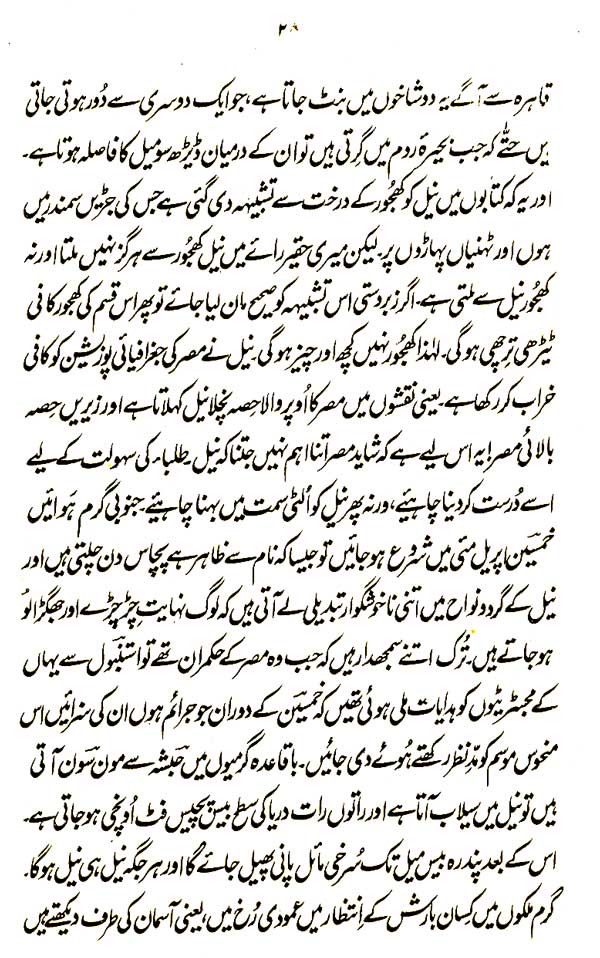 ۲۸
قاہرہ سے آگے یہ دو شاخوں میں بٹ جاتا ہے، جو ایک دوسری سے دُور ہوتی جاتی
ہیں حتّٰی کہ جب بحیرۂ روم میں گِرتی ہیں تو ان کے درمیان ڈیڑھ سو میل کا فاصلہ ہوتا ہے۔
اور یہ کہ کتابوں میں نیل کو کھجُور کے درخت سے تشبیہہ دی گئی ہے جس کی جڑیں سمندر میں
ہوں اور ٹہنیاں پہاڑوں پر۔ لیکن میری حقیر رائے میں نیل کھجُور سے ہرگز نہیں ملتا اور نہ
کھجُور نیل سے ملتی ہے۔ اگر زبردستی اس تشبیہہ کو صحیح مان لیا جائے تو پھر اس قسم کی کھجور کافی
ٹیڑھی ترچھی ہو گی۔ لہٰذا کھجُور نہیں کچھ اور چیز ہو گی۔ نیل نے مصر کی جغرافیائی پوزیشن کو کافی
خراب کر رکھا ہے۔ یعنی نقشوں میں مصر کا اُوپر والا حصہ نچلا نیل کہلاتا ہے اور زیریں حصہ
بالائی مصر! یہ اس لیے ہے کہ شاید مصر اتنا اہم نہیں جتنا کہ نیل۔ طلباء کی سہولت کے لیے
اسے دُرست کر دینا چاہیئے، ورنہ پھر نیل کو اُلٹی سمت میں بہنا چاہیئے۔ جنوبی گرم ہَوائیں
خمسین اپریل مئی میں شروع ہو جائیں تو جیسا کہ نام سے ظاہر ہے پچاس دن چلتی ہیں اور
نیل کے گرد و نواح میں اتنی ناخوشگوار تبدیلی لے آتی ہیں کہ لوگ نہایت چڑچڑے اور جھگڑالُو
ہو جاتے ہیں۔ تُرک اتنے سمجھدار ہیں کہ جب وہ مصر کے حکمران تھے تو استنبول سے یہاں
کے مجسٹریٹوں کو ہدایات ملی ہوئی تھیں کہ خمسین کے دوران جو جرائم ہوں ان کی سزائیں اس
منحوس موسم کو مدِّنظر رکھتے ہُوئے دی جائیں۔ باقاعدہ گرمیوں میں حبشہ سے مون سون آتی
ہیں تو نیل میں سیلاب آتا ہے اور راتوں رات دریا کی سطح بیس پچیس فٹ اُونچی ہو جاتی ہے۔
اس کے بعد پندرہ بیس میل تک سُرخی مائل پانی پھیل جائے گا اور ہر جگہ نیل ہی نیل ہو گا۔
گرم ملکوں میں کسان بارش کے اِنتظار میں عمودی رُخ میں، یعنی آسمان کی طرف دیکھتے ہیں